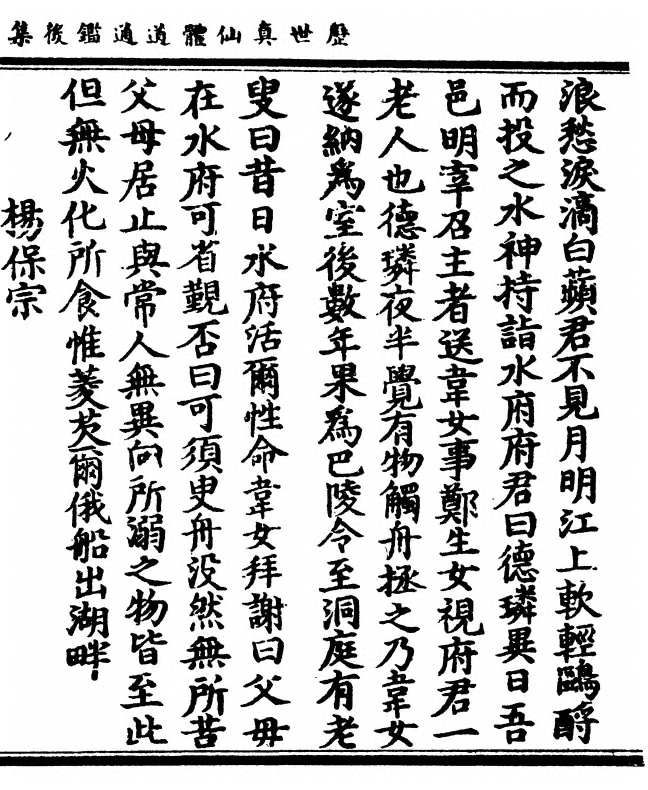 歷世真仙體道通鑑後集
浪愁淚滴白蘋君不見月明江上軟輕鷗酹
而投之水神持詣水府府君曰德璘異日吾
邑明宰召主者送韋女事鄭生女視府君一
老人也德璘夜半覺有物觸舟拯之乃韋女
遂納爲室後數年果爲巴陵令至洞庭有老
叟曰昔日水府活爾性命韋女拜謝曰父母
在水府可省覲否曰可須叟舟没然無所苦
父母居止與常人無異向所溺之物皆至此
但無火化所食惟菱芡爾俄船出湖畔
楊保宗